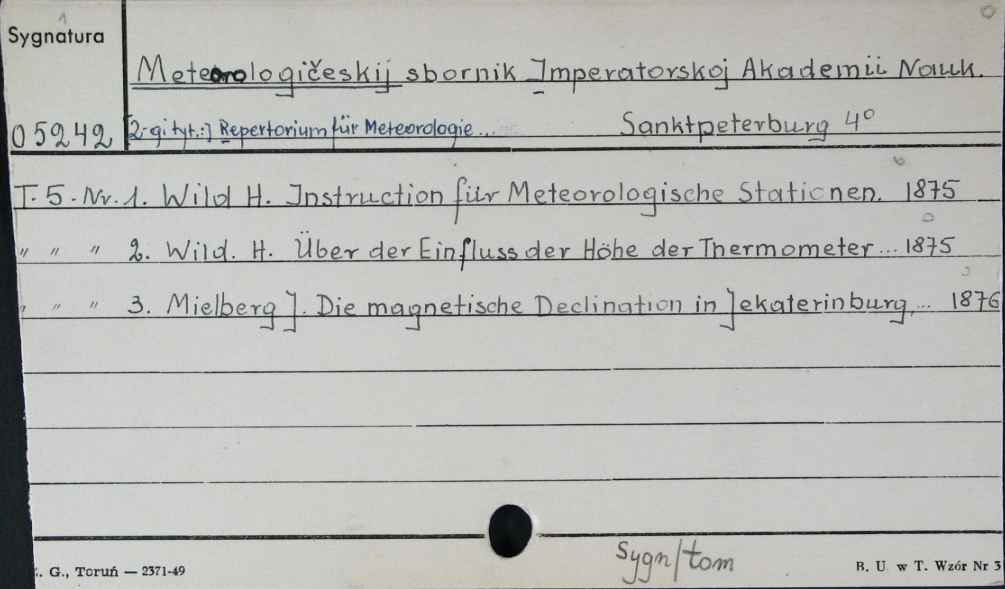 Sygnatura
Meteorologičeskij sbornik Imperatorskoj Akademii Nauk.
05242 [2-gi tyt.:] Repertorium für Meteorologie... Sanktpeterburg 4°
T. 5. Nr. 1. Wild H. Instruction für Meteorologische Stationen. 1875
" " " 2. Wild. H. Über der Einfluss der Höhe der Thermometer ... 1875
" " " 3. Mielberg J. Die magnetische Declination in Jekaterinburg,... 1876
Sygn/tom
. G., Toruń — 2371-49
B. U w T. Wzór Nr 3